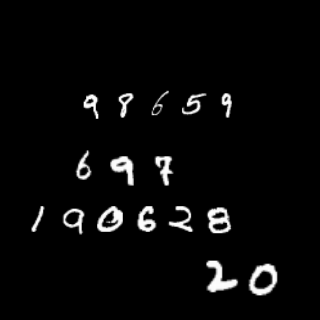 98659
697
190628
20